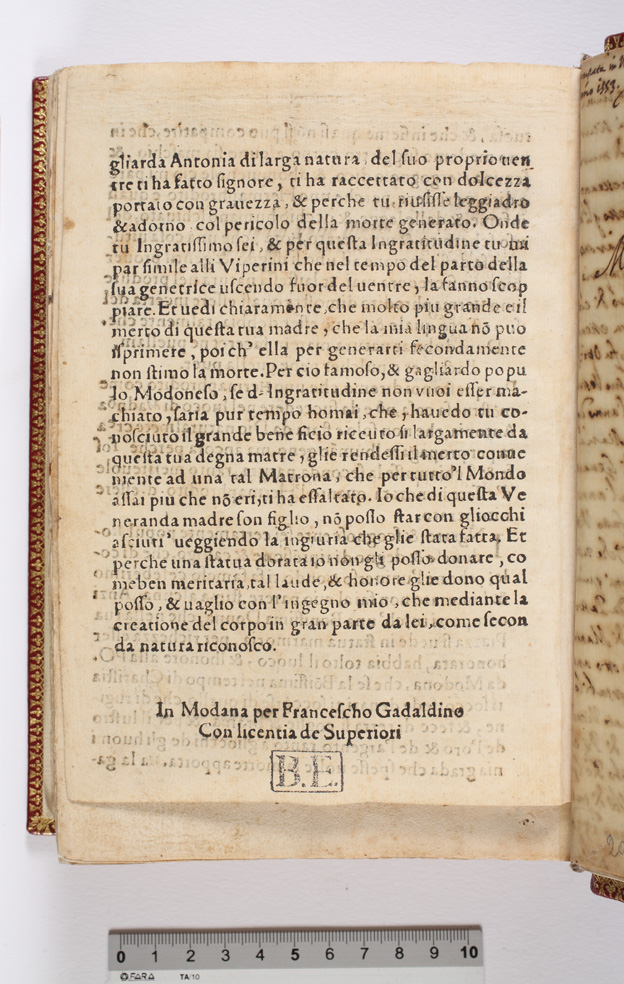 gliarda Antonia di larga natura, del suo proprio uen
tre ti ha fatto signore, ti ha raccettato con dolcezza
portato con grauezza, & perche tu riusisse leggiadro
& adorno col pericolo della morte generato. Onde
tu Ingratissimo sei, & per questa Ingratitudine tu mi
par simile alli Viperini che nel tempo del parto della
sua genetrice uscendo fuor del uentre, la fanno scop
piare. Et uedi chiaramente, che molto piu grande e il
merto di questa tua madre, che la mia lingua nõ puo
isprimere, poi ch' ella per generarti fecondamente
non stimo la morte. Per cio famoso, & gagliardo popu
lo Modoneso, se d' Ingratitudine non vuoi esser ma-
chiato, saria pur tempo homai, che, hauẽdo tu co-
nosciuto il grande beneficio riceuto si largamente da
questa tua degna matre, glie rendessi il merto conue
niente ad una tal Matrona, che per tutto'l Mondo
assai piu che nõ eri, ti ha essaltato. Io che di questa Ve
neranda madre son figlio, nõ posso star con gliocchi
asciuti' ueggiendo la ingiuria che glie stata fatta. Et
perche una statua dorata io non gli posso donare, co
me ben meritaria, tal laude, & honore glie dono qual
posso, & uaglio con l'ingegno mio, che mediante la
creatione del corpo in gran parte da lei, come secon
da natura riconosco.
In Modana per Francescho Gadaldino
Con licentia de Superiori
B.E.
0 1 2 3 4 5 6 7 8 9 10
FARA TA/10